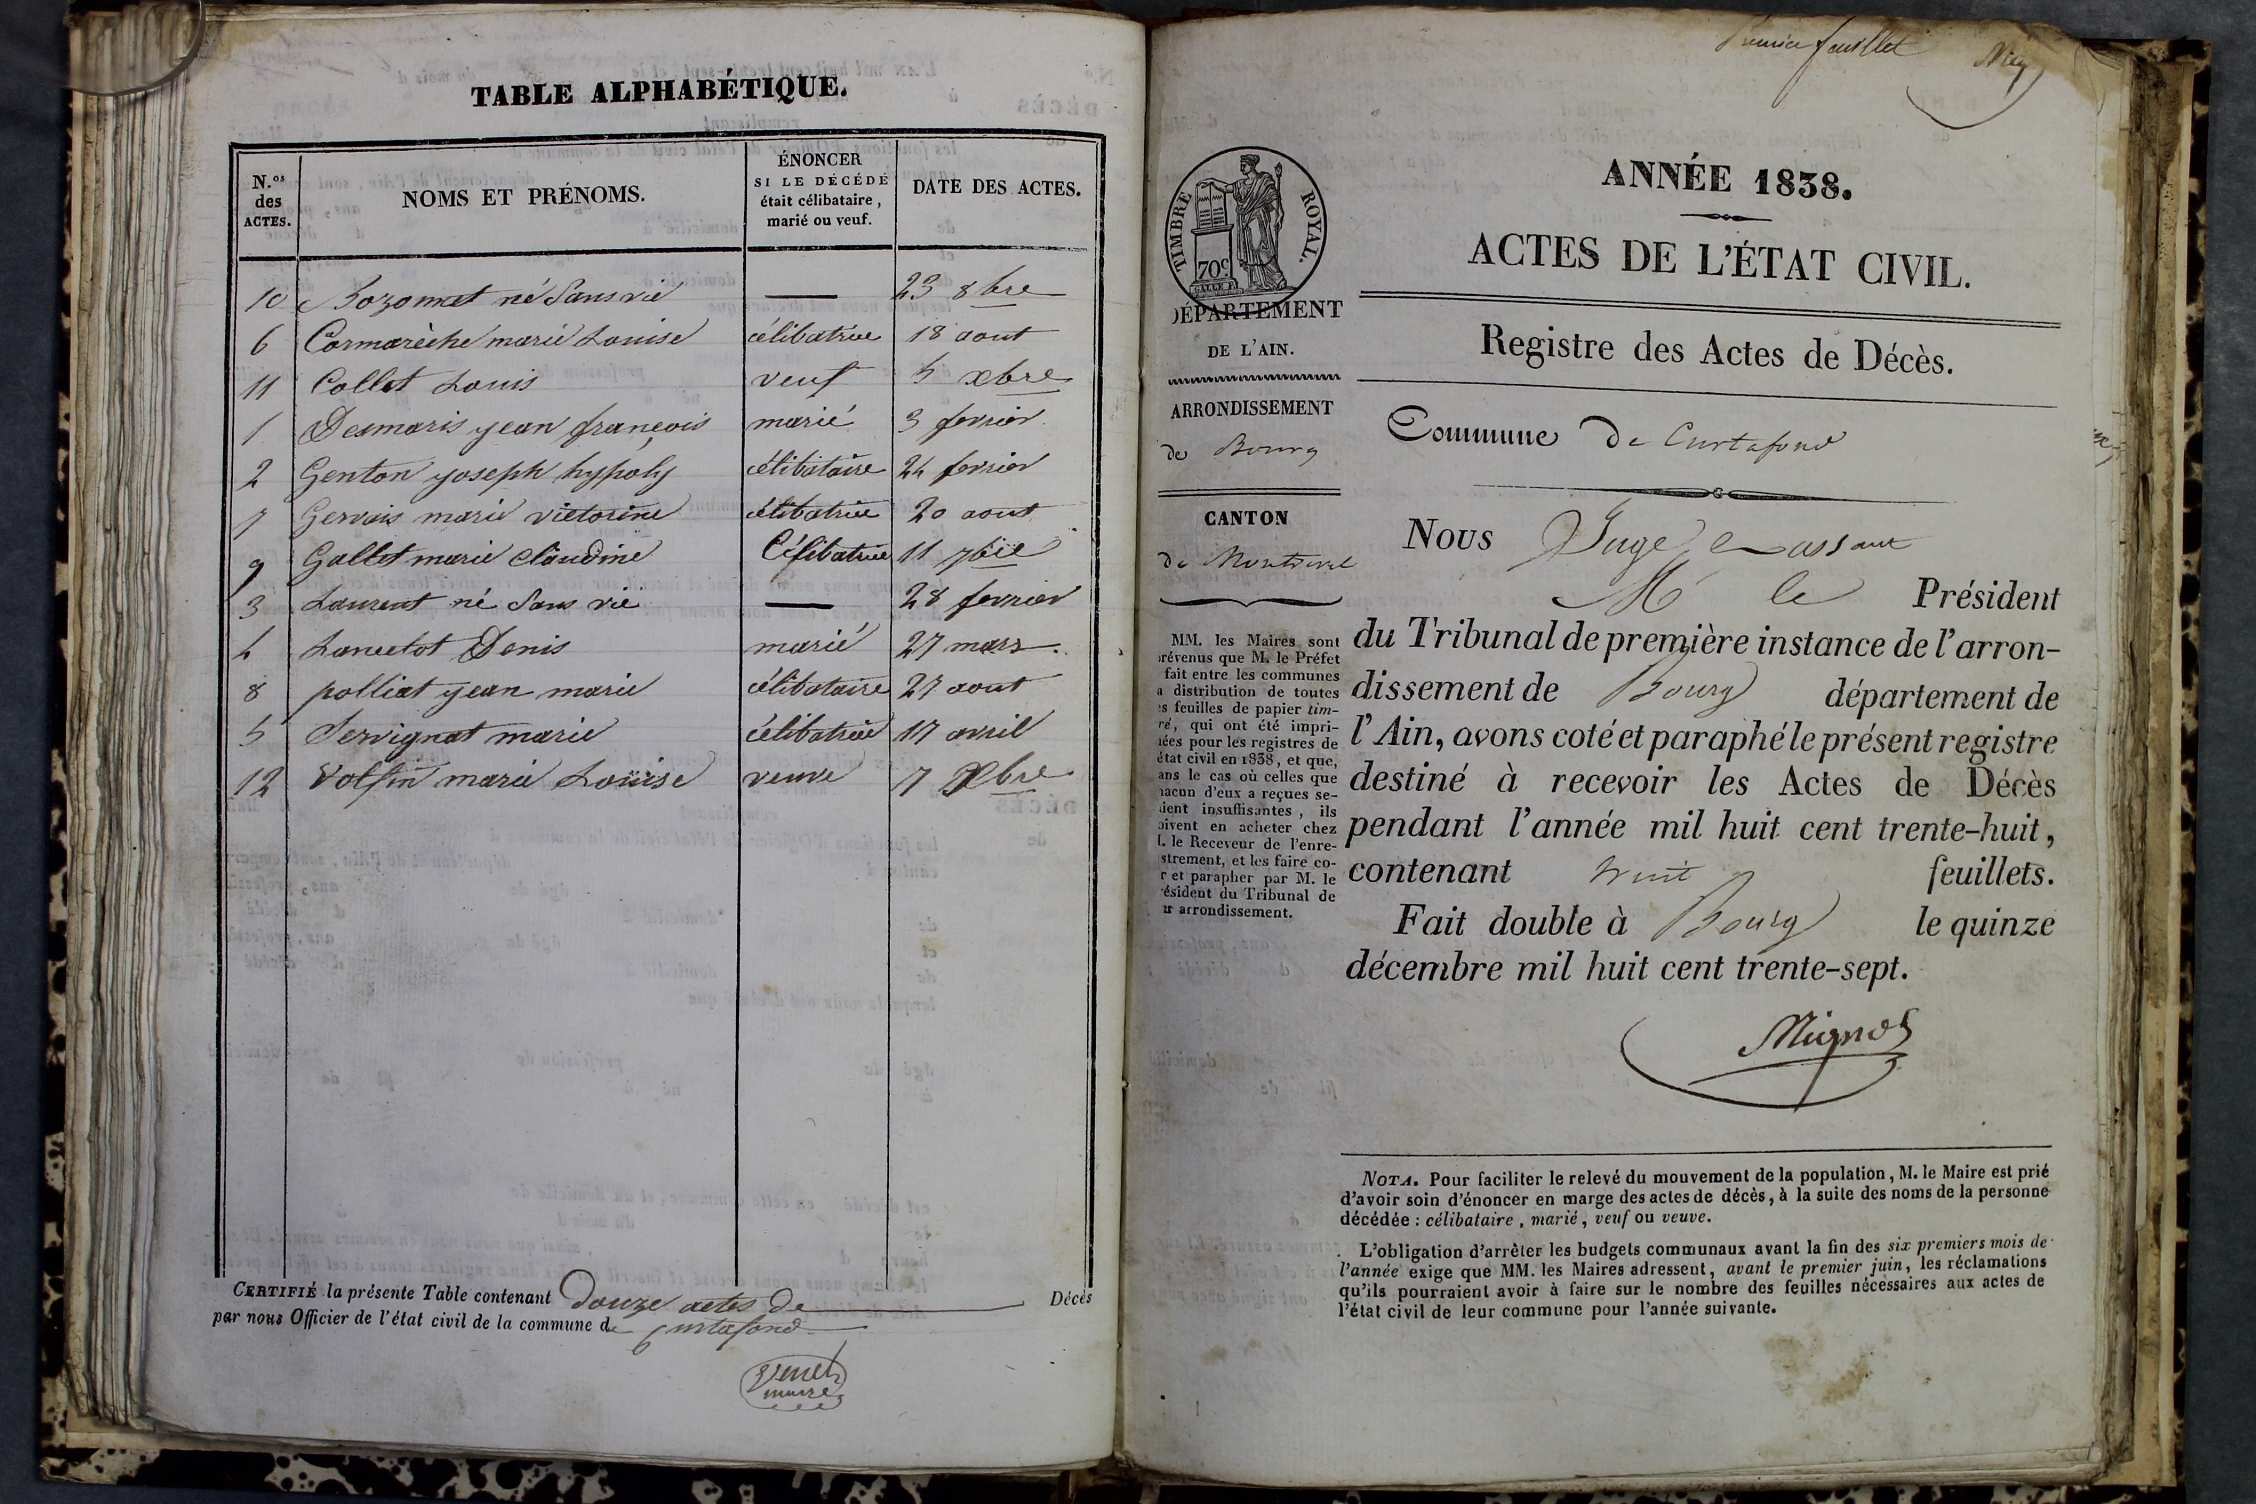 TABLE ALPHABÉTIQUE.
N.os des ACTES.
NOMS ET PRÉNOMS.
ÉNONCER
SI LE DÉCÉDÉ
était célibataire,
marié ou veuf.
DATE DES ACTES.
10 Bozonnet né Sans vie — 23 8bre
6 Cormarèche marie Louise célibatrice 18 aout
11 Collet Louis veuf 5 xbre
1 Desmaris jean françois marié 3 fevrier
2 Genton joseph hypoly célibataire 24 fevrier
7 Gervais marie victorine célibatrice 20 aout
9 Gallet marie claudine Célibatrice 11 7bre
3 Laurent né Sans vie — 28 fevrier
4 Lancelot Denis marié 27 mars
8 polliat jean marie célibataire 27 aout
5 Servignat marie célibatrice 17 avril
12 Volfin marie Louise veuve 7 Xbre
CERTIFIÉ la présente Table contenant Douze actes de Décès
par nous Officier de l'état civil de la commune de Curtafond
Venet
maire
Premier feuillet
ANNÉE 1838.
ACTES DE L'ÉTAT CIVIL.
Registre des Actes de Décès.
Commune De Curtafond
TIMBRE ROYAL.
70c
DÉPARTEMENT
DE L'AIN.
ARRONDISSEMENT
de Bourg
CANTON
de Montrevel
MM. les Maires sont
révenus que M. le Préfet
fait entre les communes
a distribution de toutes
s feuilles de papier tim-
ré, qui ont été impri-
ées pour les registres de
état civil en 1838, et que,
ans le cas où celles que
acun d'eux a reçues se-
ient insuffisantes, ils
oivent en acheter chez
. le Receveur de l'enre-
strement, et les faire co-
r et parapher par M. le
résident du Tribunal de
ur arrondissement.
Nous Juge
M le Président
du Tribunal de première instance de l'arron-
dissement de Bourg département de
l'Ain, avons coté et paraphé le présent registre
destiné à recevoir les Actes de Décès
pendant l'année mil huit cent trente-huit,
contenant huit feuillets.
Fait double à Bourg le quinze
décembre mil huit cent trente-sept.
Mignot
NOTA. Pour faciliter le relevé du mouvement de la population, M. le Maire est prié
d'avoir soin d'énoncer en marge des actes de décès, à la suite des noms de la personne
décédée : célibataire, marié, veuf ou veuve.
L'obligation d'arrêter les budgets communaux avant la fin des six premiers mois de
l'année exige que MM. les Maires adressent, avant le premier juin, les réclamations
qu'ils pourraient avoir à faire sur le nombre des feuilles nécessaires aux actes de
l'état civil de leur commune pour l'année suivante.